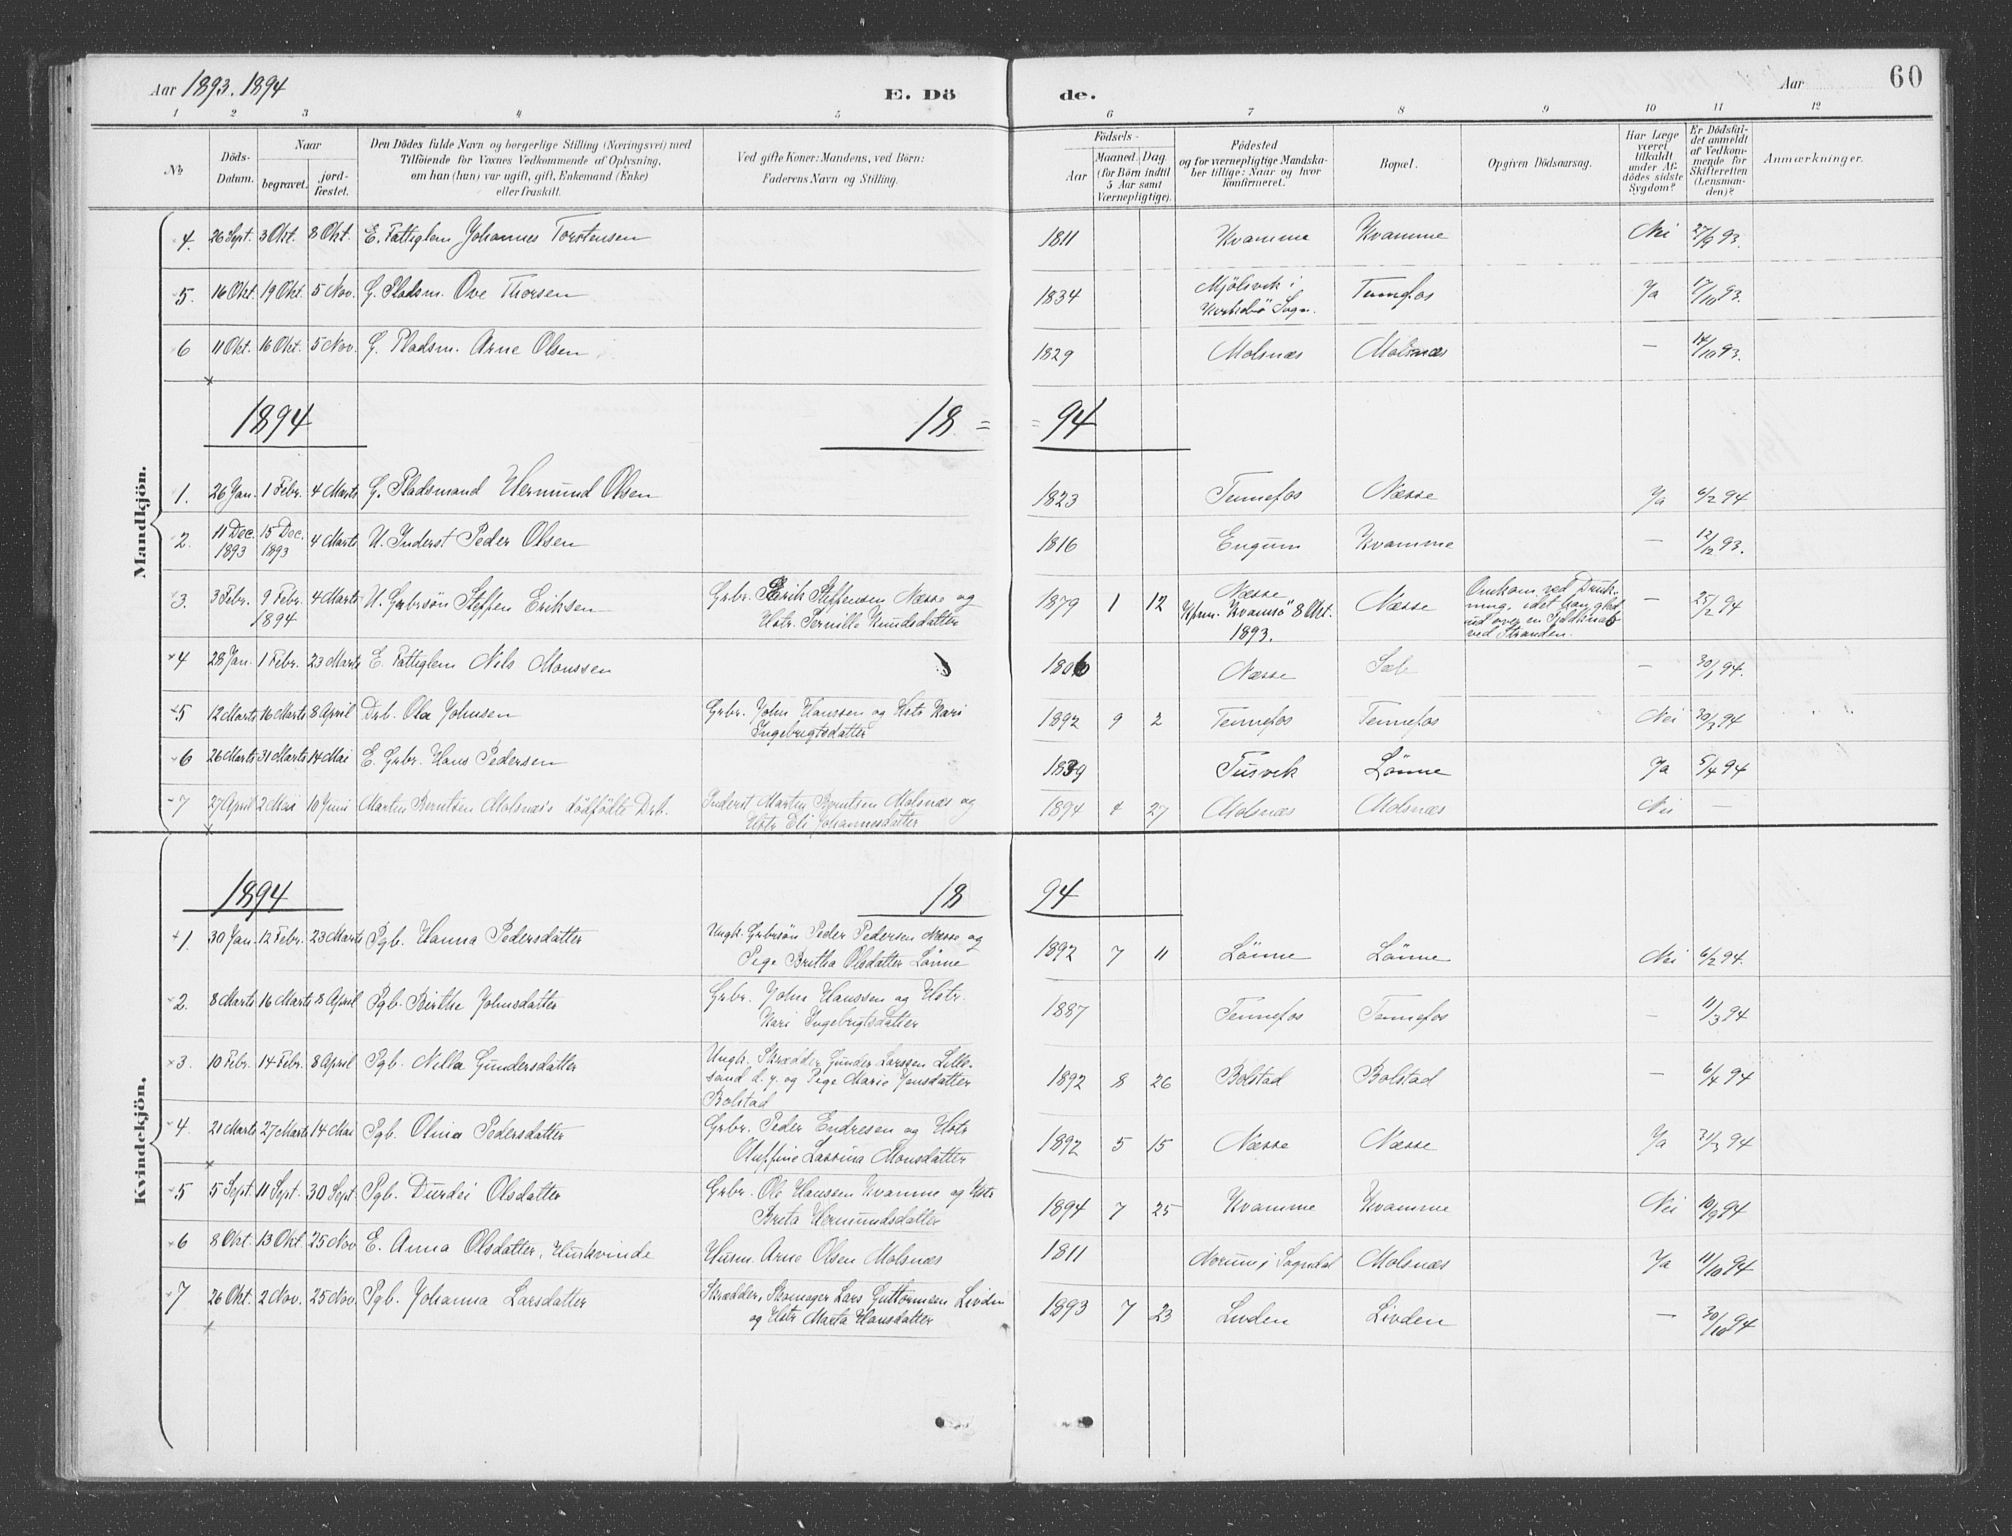 Aar 1893. 1894 E. Dö de. Aar 60
1 2 3 4 5 6 7 8 9 10 11 12
No
Döds-Datum.
Naar
begravet.
jordfæstet.
Den Dödes fulde Navn og borgerlige Stilling (Næringsvei) med
Tilföiende for Voxnes Vedkommende af Oplysning,
om han (hun) var ugift, gift, Enkemand (Enke)
eller fraskilt.
Ved gifte Koner: Mandens, ved Börn:
Faderens Navn og Stilling.
Födsels-
Aar
Maaned. Dag
(for Börn indtil
5 Aar samt
Værnepligtige).
Födested
og for værnepligtige Mandskaber
tillige: Naar og hvor
konfirmeret.
Bopæl.
Opgiven Dödsaarsag.
Har Læge
været
tilkaldt
under Afdödes
sidste
Sygdom?
Er Dödsfaldet
anmeldt
af Vedkommende
for
Skifteretten
(Lensmanden)?
Anmærkninger.
Mandkjön.
4. 26 Sept. 3 Okt. 8 Okt. E. Fattiglem Johannes Torstensen 1811 Kvamme Kvamme Nei 27/9 93.
5. 16 Okt. 19 Okt. 5 Nov. G. Pladsm. Ove Thorsen 1834 Mjölsvik i Tennefos Ja 17/10 93.
Kirkebö Sogn.
6 11 Okt. 16 Okt. 5 Nov. G. Pladsm. Arne Olsen 1829 Molsnæs Molsnæs — 14/10 93.
1894 18 = = 94
1. 26 Jan. 1 Febr. 4 Marts G. Pladsmand Hermund Olsen 1823 Tennefos Næsse Ja 6/2 94
2. 11 Dec. 1893 15 Dec. 1893 4 Marts U. Inderst Peder Olsen 1816 Engum Kvamme — 12/12 93.
3. 3 Febr. 9 Febr. 1894 4 Marts U. Grbrsön Steffen Eriksen Grbr. Erik Steffensen Næsse og 1879 1 12 Næsse Næsse Omkom ved Drukning, — 25/2 94
Hstr. Pernille Knudsdatter Kfrm. Kvamsö 8 Okt. 1893. idet han gled
ud over en
ved Stranden.
4 28 Jan. 1 Febr. 23 Marts E. Fattiglem Nils Monssen 1806 Næsse Sæb — 30/1 94.
5 12 Marts 16 Marts 8 April Drb. Ola Johnsen Grbr. John Hanssen og Hstr Kari 1892 9 2 Tennefos Tennefos Nei 30/3 94
Ingebrigtsdatter
6 26 Marts 31 Marts 14 Mai E. Grbr. Hans Pedersen 1839 Tusvik Lönne Ja 5/4 94
7 27 April 2 Mai 10 Juni Martin Berntsen Molsnæs's dödfödte Drb. Inderst Martin Berntsen Molsnæs og 1894 4 27 Molsnæs Molsnæs Nei —
Hstr Eli Johannesdatter
Kvindekjön.
1894 18 94
1. 30 Jan. 12 Febr. 23 Marts Pgb. Hanna Pedersdatter Ungk. Grbrsön Peder Pedersen Næsse og 1892 7 11 Lönne Lönne Nei 6/2 94.
Pige Britha Olsdatter Lönne
2. 8 Marts 16 Marts 8 April Pgb. Birthe Johnsdatter Grbr. John Hanssen og Hstr. 1887 Tennefos Tennefos — 11/3 94
Kari Ingebrigtsdatter
3. 10 Febr. 14 Febr. 8 April Pgb. Nilla Gundersdatter Ungk. Skrædder Gunder Larssen Lille- 1892 8 26 Bolstad Bolstad — 6/4 94
sand d. y. og Pige Marie Jensdatter
Bolstad
4. 21 Marts 27 Marts 14 Mai Pgb. Olina Pedersdatter Grbr. Peder Endresen og Hstr 1892 5 15 Næsse Næsse Ja 31/3 94
Oluffine Lassina Monsdatter
5 5 Sept. 11 Sept. 30 Sept Pgb. Durdei Olsdatter Grbr. Ole Hanssen Kvamme og Hstr 1894 7 25 Kvamme Kvamme Nei 10/9 94
Brita Hermundsdatter
6 8 Okt. 13 Okt. 25 Nov E. Anna Olsdatter, Huskvinde Husm. Arne Olsen Molsnæs 1811 Norum i Sogndal Molsnæs Ja 11/10 94
7 26 Okt. 2 Nov. 25 Nov. Pgb. Johanna Larsdatter Skrædder, Skomager Lars Guttormsen Livden 1893 7 23 Livden Livden — 30/10 94
og Hstr Marta Hansdatter